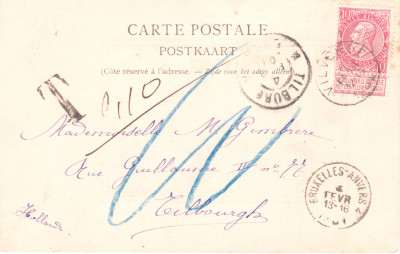 CARTE POSTALE
POSTKAART
(Côté réservé à l'adresse. — Zijde voor het adres alleen)
TILBURG
T
0,10
10
Mademoiselle M.
Rue Guillaume II no 77
Tilbourgh
Hollande
BRUXELLES-ANVERS 4
4
FEVR
13-16